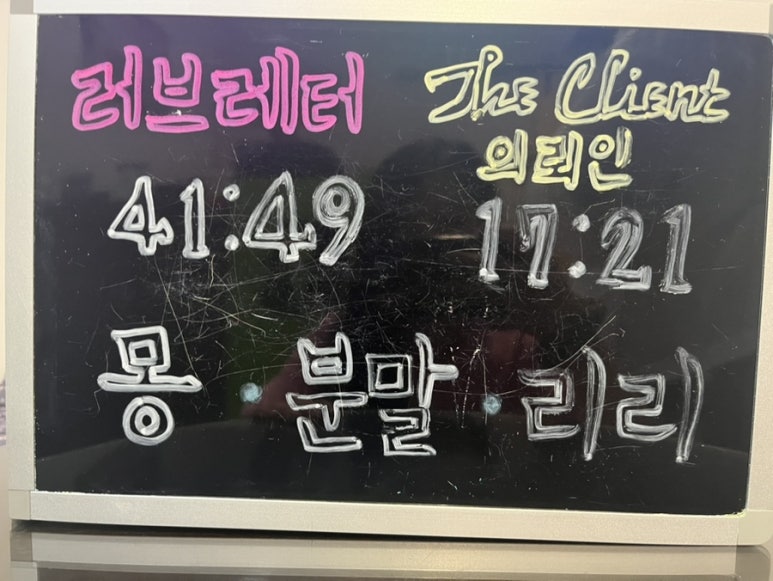 러브레터
41:49
The Client
의뢰인
17:21
몽·분말·리리